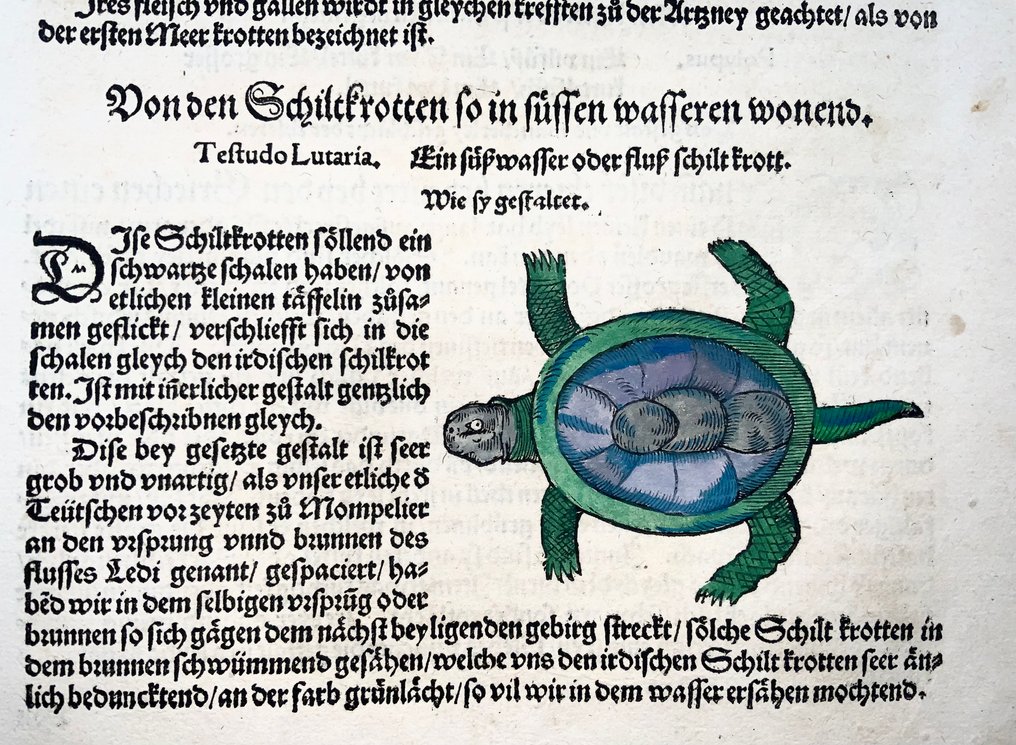 Ires fleisch vnd gallen wirdt in gleychen krefften zů der Artzney geachtet/ als von
der ersten Meer krotten bezeichnet ist.
Von den Schiltkrotten so in süssen wasseren wonend.
Testudo Lutaria. Ein süßwasser oder fluß schilt krott.
Wie sy gestaltet.
DIse Schiltkrotten söllend ein
schwartze schalen haben/ von
etlichen kleinen täffelin zůsa⸗
men geflickt/ verschliefft sich in die
schalen gleych den irdischen schilkrot
ten. Ist mit iñerlicher gestalt gentzlich
den vorbeschribnen gleych.
Dise bey gesetzte gestalt ist seer
grob vnd vnartig/ als vnser etliche d̕
Teütschen vor zeyten zů Mompelier
an den vrsprung vnnd brunnen des
flusses Ledi genant/ gespaciert/ ha⸗
bēd wir in dem selbigen vrsprūg oder
brunnen so sich gägen dem nächst bey ligenden gebirg streckt/ sölche Schilt krotten in
dem brunnen schwümmend gesähen/ welche vns den irdischen Schilt krotten seer än⸗
lich beduncktend/ an der farb grünlächt/ so vil wir in dem wasser ersähen mochtend.